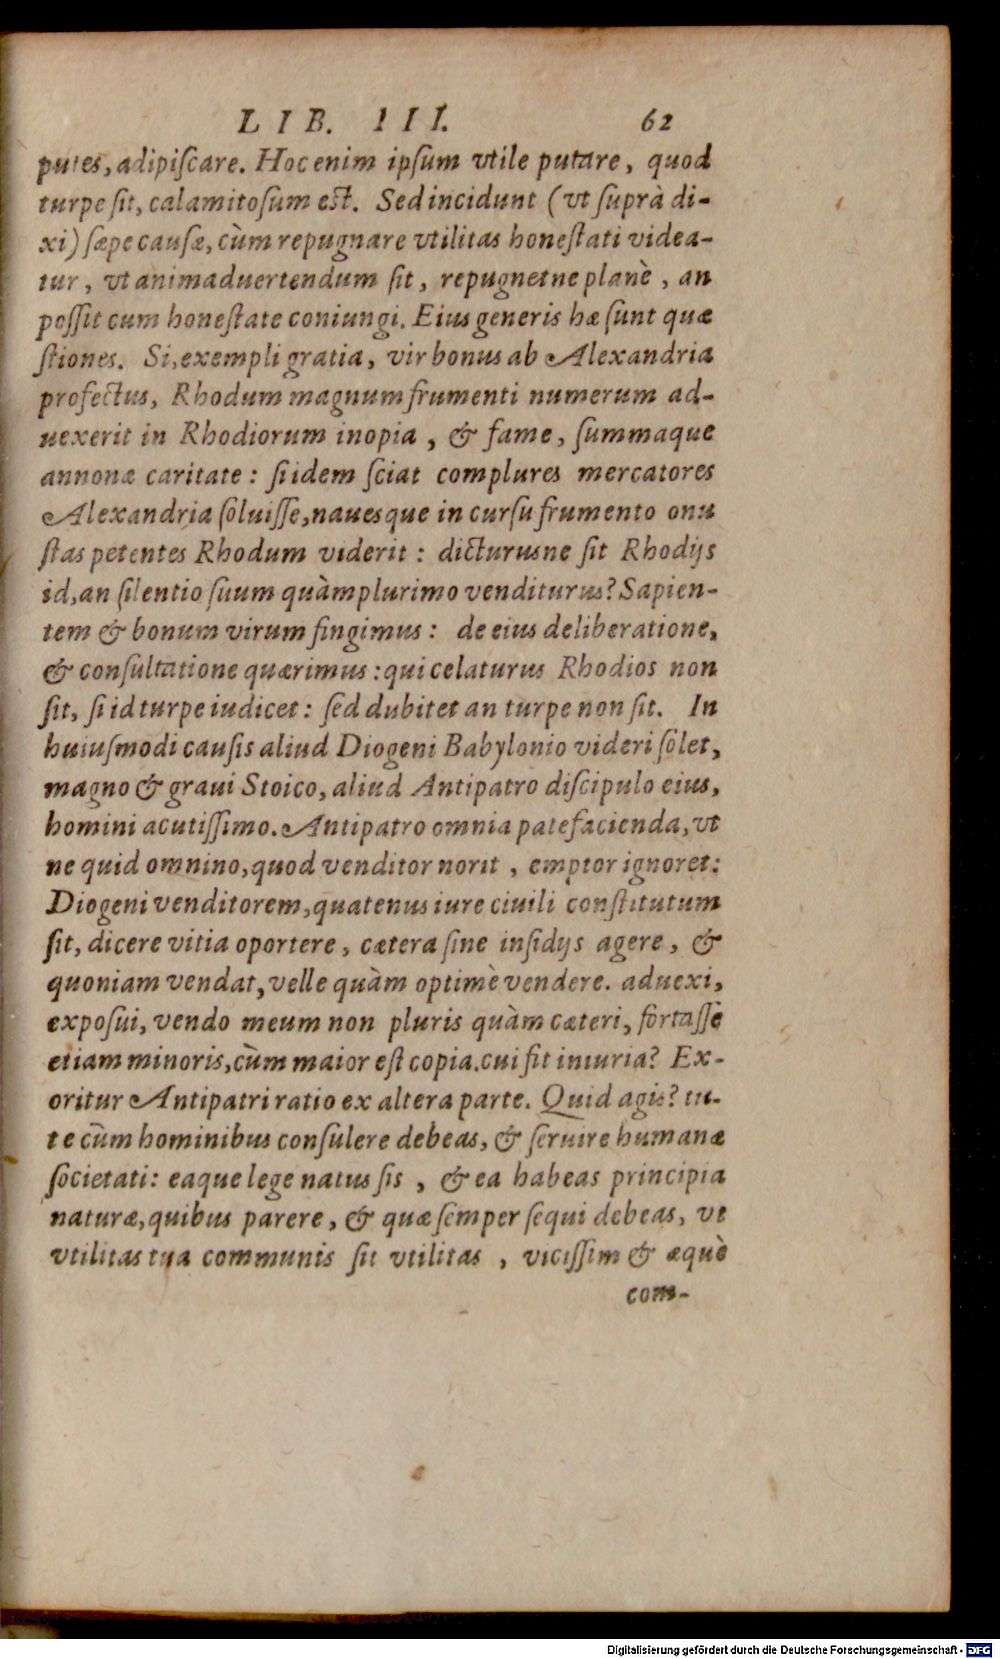 LIB. III. 62
putes, adipiſcare. Hoc enim ipſum vtile putare, quod
turpe ſit, calamitoſum eſt. Sed incidunt (vt ſuprà di-
xi) ſæpe cauſæ, cùm repugnare vtilitas honeſtati videa-
tur, vt animaduertendum ſit, repugnetne planè, an
poſſit cum honeſtate coniungi. Eius generis hæ ſunt quæ
ſtiones. Si, exempli gratia, vir bonus ab Alexandria
profectus, Rhodum magnum frumenti numerum ad-
uexerit in Rhodiorum inopia, & fame, ſummaque
annonæ caritate: ſi idem ſciat complures mercatores
Alexandria ſoluiſſe, naues que in curſu frumento onu
ſtas petentes Rhodum viderit: dicturusne ſit Rhodijs
id, an ſilentio ſuum quàmplurimo venditurus? Sapien-
tem & bonum virum fingimus: de eius deliberatione,
& conſultatione quærimus: qui celaturus Rhodios non
ſit, ſi id turpe iudicet: ſed dubitet an turpe non ſit. In
huiuſmodi cauſis aliud Diogeni Babylonio videri ſolet,
magno & graui Stoico, aliud Antipatro diſcipulo eius,
homini acutiſſimo. Antipatro omnia patefacienda, vt
ne quid omnino, quod venditor norit, emptor ignoret:
Diogeni venditorem, quatenus iure ciuili conſtitutum
ſit, dicere vitia oportere, cætera ſine inſidijs agere, &
quoniam vendat, velle quàm optimè vendere. aduexi,
expoſui, vendo meum non pluris quàm cæteri, fortaſſe
etiam minoris, cùm maior eſt copia. cui fit iniuria? Ex-
oritur Antipatri ratio ex altera parte. Quid agis? tu-
te cùm hominibus conſulere debeas, & ſeruire humanæ
ſocietati: eaque lege natus ſis, & ea habeas principia
naturæ, quibus parere, & quæ ſemper ſequi debeas, vt
vtilitas tua communis ſit vtilitas, viciſſim & æquè
com-
Digitalisierung gefördert durch die Deutsche Forschungsgemeinschaft - DFG